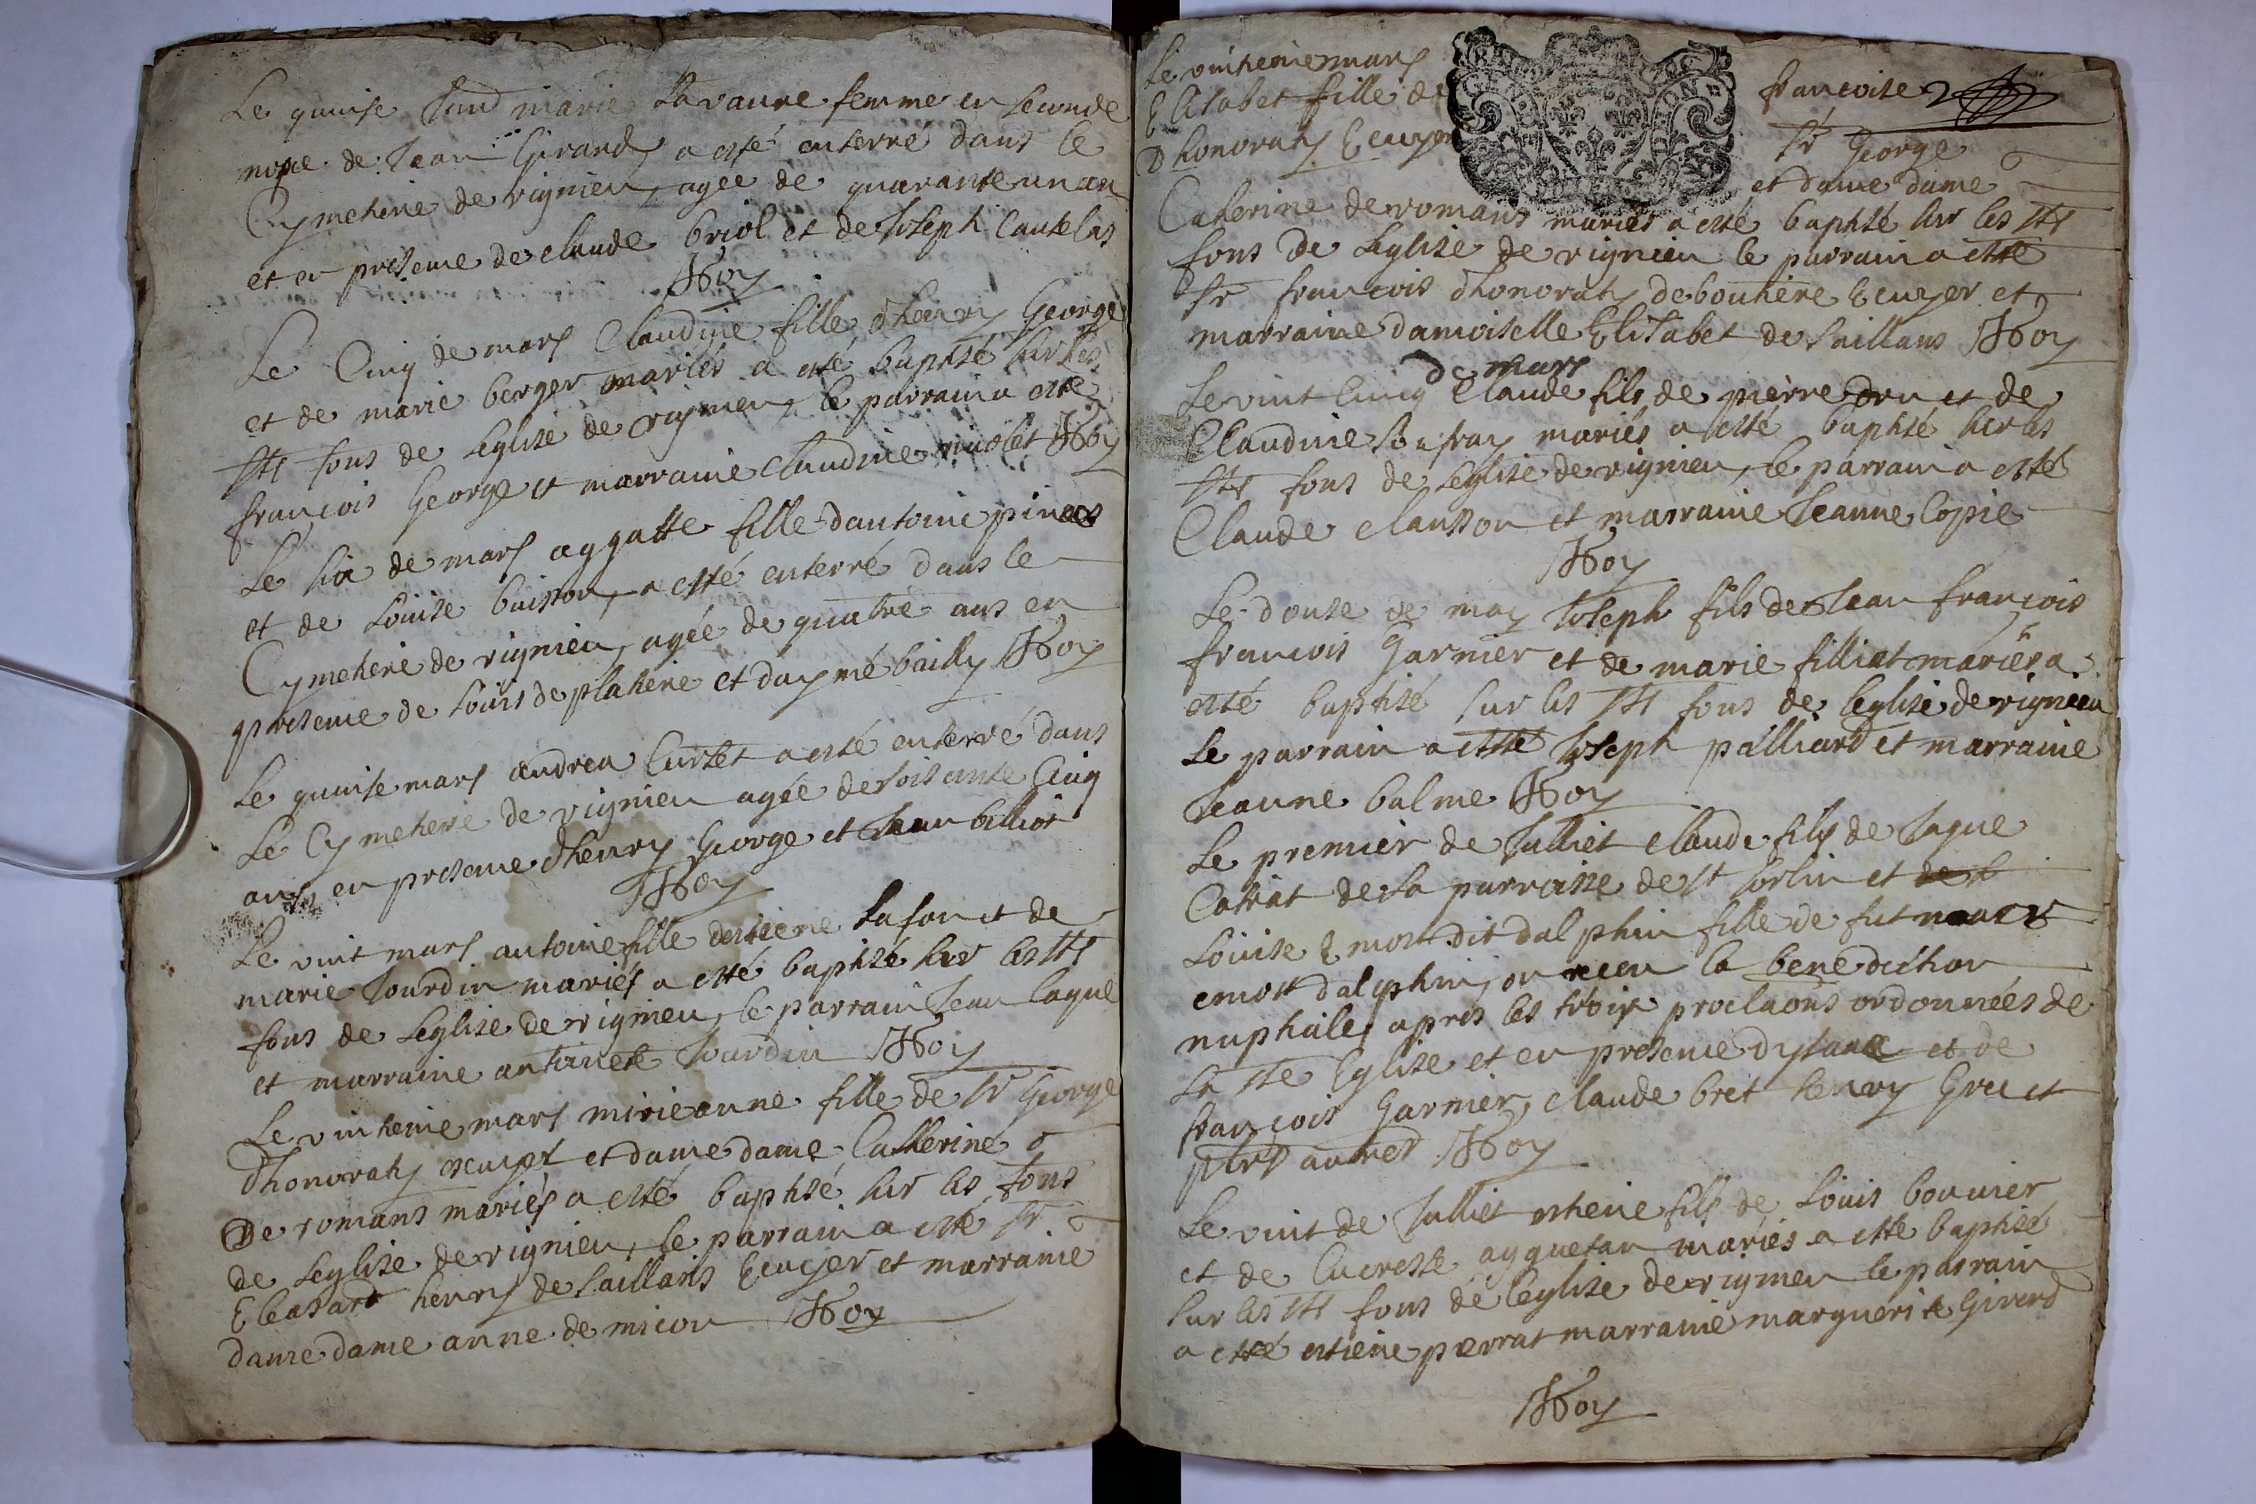 Le quinse marie Lavaure femme en seconde
de Jean Girard a esté enterré dans le
Cymetiere de vignieu, agée de quarante un an
et en presence de claude briol et de Joseph Cautelas
Roy
Le Cinq de mars Claudine fille d'henry George
et de marie berger mariés a esté baptisé sur les
sts fons de Leglise de vignieu, le parrain a esté
françois George et marraine claudine violet Roy
Le six de mars aggatte fille dantoine
et de Louise buisson, a esté enterré dans le
Cymetiere de vignieu, agée de quatre ans en
presence de Louis de platiere et daymé bailly Roy
Le quinse mars andrea Curtet a esté enterré dans
Le Cymetiere de vignieu agée de soisante Cinq
ans, en presence d'henry George et Jean billiot
Roy
Le vint mars antoine fille destiene Lafon et de
marie Jourdin mariés a esté baptisé sur les sts
fons de Leglise de vignieu, le parrain Jean Caque
et marraine antoinete Jourdin Roy
Le vintieme mars mirieanne fille de sr George
Dhonoraty et dame dame Catherine
De romans mariés a esté baptisé sur les fons
de Leglise de vignieu, le parrain a esté sr
Eleasard henry de Saillans Ecuyer et marraine
dame dame anne de micou Roy
Le vintieme mars françoise
Elisabet fille de sr George
Dhonoraty Ecuyer et dame dame
Caterine de romans mariés a esté baptisé sur les sts
fons De Leglise de vignieu le parrain a esté
sr françois dhonoraty de boutiere Ecuyer et
marraine damoiselle Elisabet de Saillans Roy
de mars
Le vint Cinq Claude fils de pierre Dru et de
Claudine Soufray mariés a esté baptisé sur les
sts fons de Leglise de vignieu, le parrain a esté
Claude clausson et marraine Jeanne Copie
Roy
Le douse de may Joseph fils de Jean françois
françois Garnier et de marie filliat mariés a
esté baptisé sur les sts fons de leglise de vignieu
Le parrain a esté Joseph palliard et marraine
Jeanne balme Roy
Le premier de Julliet claude fils de Jaque
Catrat de la parroisse de st Sorlin et
Louise Emott dit dalphin fille de fut
emott dalphin, on receu la benediction
nuptiale, apres les trois proclaons ordonnées de
La ste Eglise et en presence et de
françois Garnier, claude bret henry Gree et
plrs autres Roy
Le vint de Julliet estiene fils de Louis bouvier
et de Lucresse ayguetan mariés a esté baptisé
sur les sts fons de leglise de vignieu le parrain
a esté estiene perrat marraine marguerite Girerd
Roy